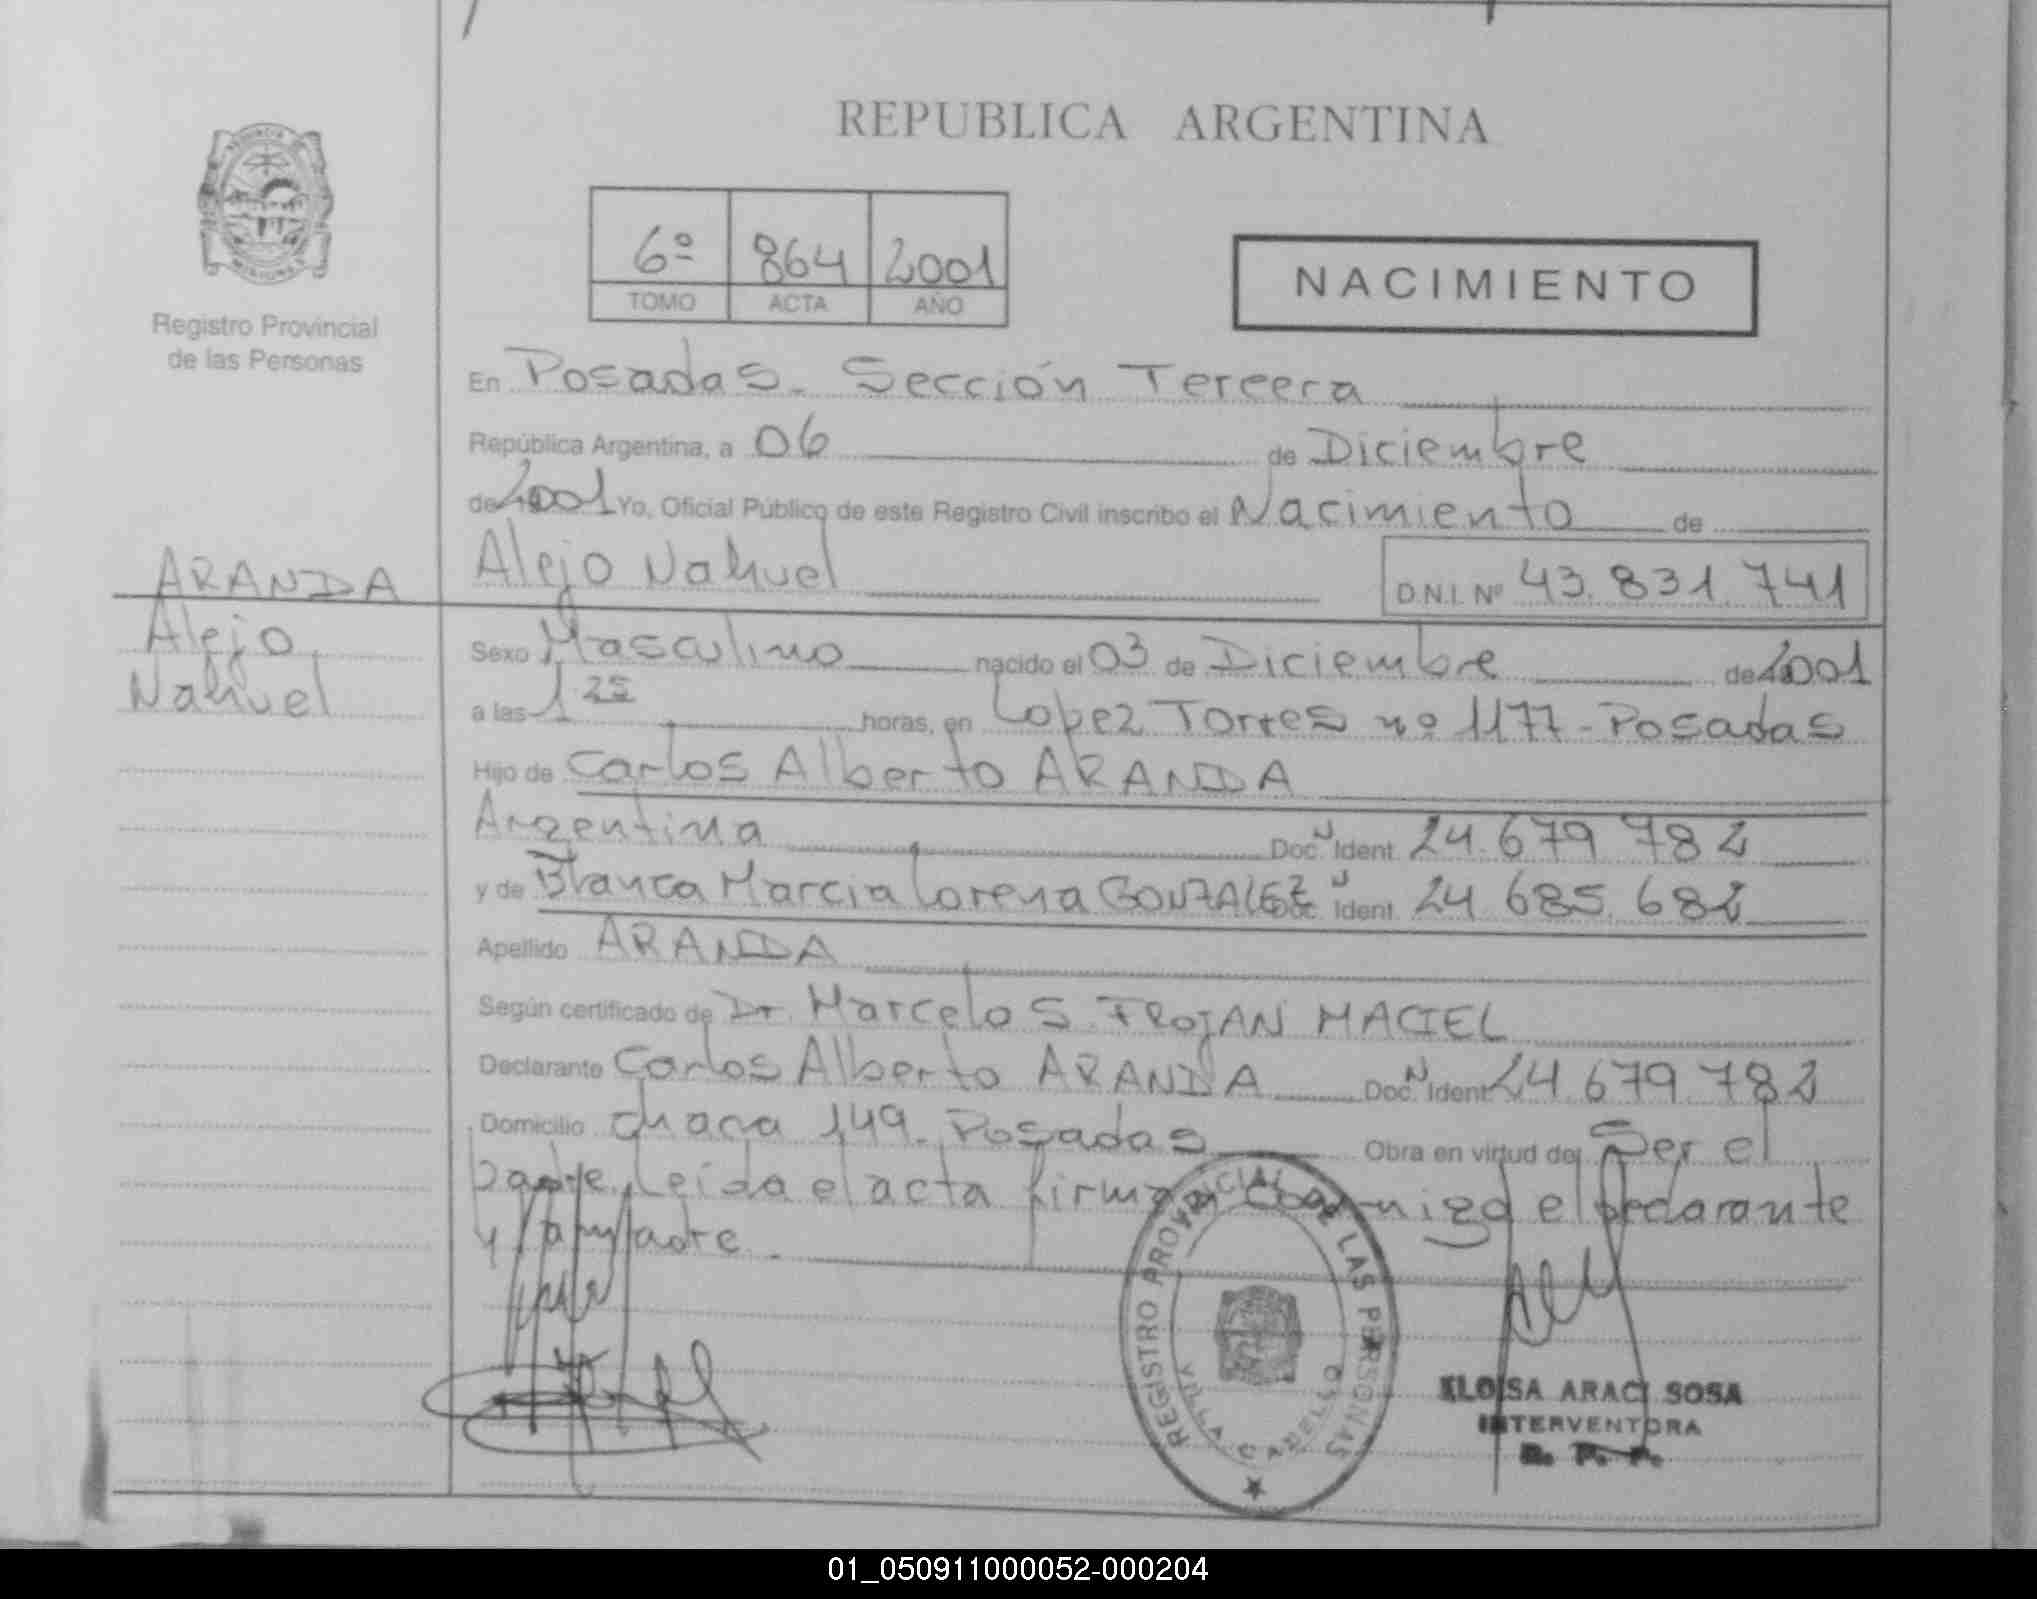 REPUBLICA ARGENTINA
6º 864 2001
TOMO ACTA AÑO
NACIMIENTO
Registro Provincial
de las Personas
En Posadas. Sección Tercera
República Argentina, a 06 de Diciembre
de 2001 Yo, Oficial Público de este Registro Civil inscribo el Nacimiento de
Alejo Nahuel D.N.I. Nº 43.831.741
ARANDA
Alejo
Nahuel
Sexo Masculino nacido el 03 de Diciembre de 2001
a las 1 25 horas, en Lopez Torres nº 1177 - Posadas
Hijo de Carlos Alberto ARANDA
Argentina Doc. N Ident. 24.679.782
y de Blanca Marcia Lorena GONZALEZ Doc. N Ident. 24.685.682
Apellido ARANDA
Según certificado de Dr. Marcelo S. FROJAN MACIEL
Declarante Carlos Alberto ARANDA Doc. N Ident. 24.679.782
Domicilio chacra 149. Posadas Obra en virtud de Ser el
padre. Leída el acta firman conmigo el declarante
y la madre.
REGISTRO PROVINCIAL DE LAS PERSONAS
VILLA CABELLO
ELOISA ARACI SOSA
INTERVENTORA
R. P. P.
01_050911000052-000204